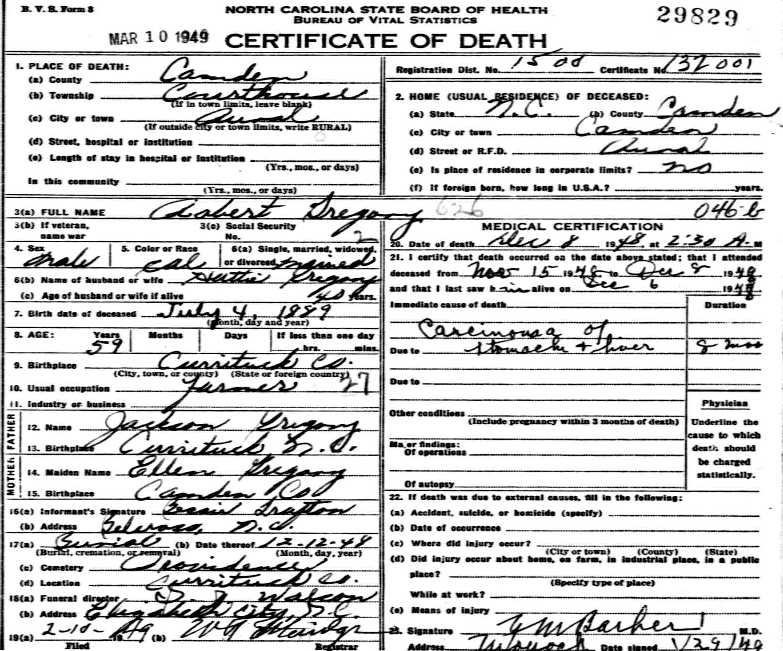 B. V. S. Form 8
NORTH CAROLINA STATE BOARD OF HEALTH
BUREAU OF VITAL STATISTICS
29829
MAR 10 1949
CERTIFICATE OF DEATH
Registration Dist. No. 1500 Certificate No. 132001
1. PLACE OF DEATH:
(a) County Camden
(b) Township Courthouse
(If in town limits, leave blank)
(c) City or town Rural
(If outside city or town limits, write RURAL)
(d) Street, hospital or institution
(e) Length of stay in hospital or institution
(Yrs., mos., or days)
In this community
(Yrs., mos., or days)
2. HOME (USUAL RESIDENCE) OF DECEASED:
(a) State N.C. (b) County Camden
(c) City or town Camden
(d) Street or R.F.D. Rural
(e) Is place of residence in corporate limits? no
(f) If foreign born, how long in U.S.A.? years.
3(a) FULL NAME Robert Gregory 626
046-b
3(b) If veteran, name war
3(c) Social Security No. 2
4. Sex male
5. Color or Race Col
6(a) Single, married, widowed, or divorced married
6(b) Name of husband or wife Hattie Gregory
(c) Age of husband or wife if alive 40 years.
7. Birth date of deceased July 4, 1889
(Month, day and year)
8. AGE: Years 59 Months Days If less than one day hrs. mins.
9. Birthplace Currituck Co.
(City, town, or county) (State or foreign country)
10. Usual occupation Farmer 27
11. Industry or business
FATHER
12. Name Jackson Gregory
13. Birthplace Currituck N.C.
MOTHER
14. Maiden Name Ellen Gregory
15. Birthplace Camden Co
16(a) Informant's Signature
(b) Address N.C.
17(a) Burial (b) Date thereof 12-12-48
(Burial, cremation, or removal) (Month, day, year)
(c) Cemetery Providence
(d) Location Currituck Co.
18(a) Funeral director Walson
(b) Address Elizabeth City, N.C.
19(a) 2-10-49 (b)
Filed Registrar
MEDICAL CERTIFICATION
20. Date of death Dec 8 1948, at 2:30 A.M
21. I certify that death occurred on the date above stated; that I attended
deceased from Nov 15 1948 to Dec 8 1948
and that I last saw him alive on Dec 6 1948
Immediate cause of death
Duration
Carcinoma of
Due to stomach + liver 8 mos
Due to
Other conditions
(Include pregnancy within 3 months of death)
Major findings:
Of operations
Of autopsy
Physician
Underline the cause to which death should be charged statistically.
22. If death was due to external causes, fill in the following:
(a) Accident, suicide, or homicide (specify)
(b) Date of occurrence
(c) Where did injury occur?
(City or town) (County) (State)
(d) Did injury occur about home, on farm, in industrial place, in a public
place?
(Specify type of place)
While at work?
(e) Means of injury
23. Signature Barker M.D.
Address Moyock Date signed 1/29/49